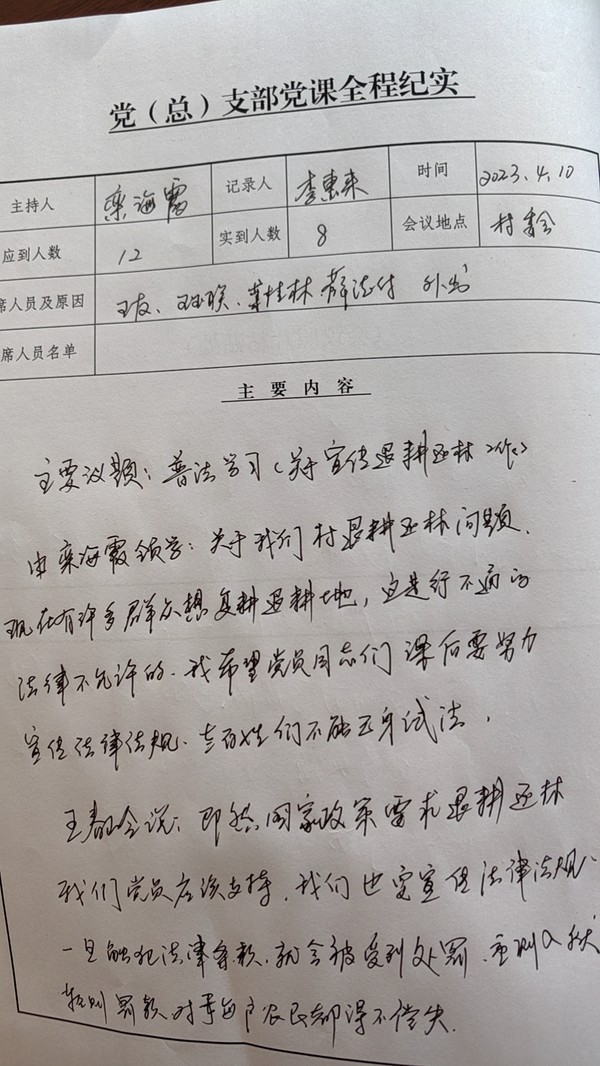 党（总）支部党课全程纪实
主持人 栾海霞 记录人 李惠来 时间 2023.4.10
应到人数 12 实到人数 8 会议地点 村委会
席人员及原因 王友、王联、桂林、薛法付 外出
席人员名单
主要内容
主要议题：普法学习（关于宣传退耕还林工作）
由栾海霞领学：关于我们村退耕还林问题、
现在有许多群众想复耕退耕土地，这是行不通的
法律不允许的、我希望党员同志们课后要努力
宣传法律法规、老百姓们不能以身试法，
王春会说：即然国家政策需求退耕还林
我们党员应该支持、我们也要宣传法律法规、
一旦触犯法律条款、就会被受到处罚、重则入狱
轻则罚款、对于每户农民都得不偿失、